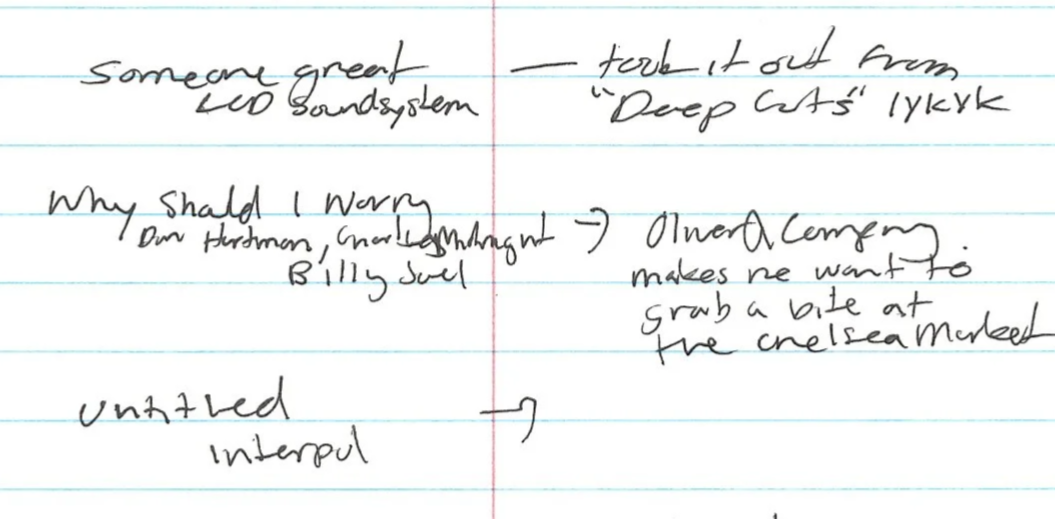 Someone great — took it out from
LCD Soundsystem "Deep Cuts" IYKYK
Why Should I Worry → Oliver & Company.
Dan Hartman, Charlie Midnight makes me want to
Billy Joel grab a bite at
the Chelsea Market
Untitled →
Interpol